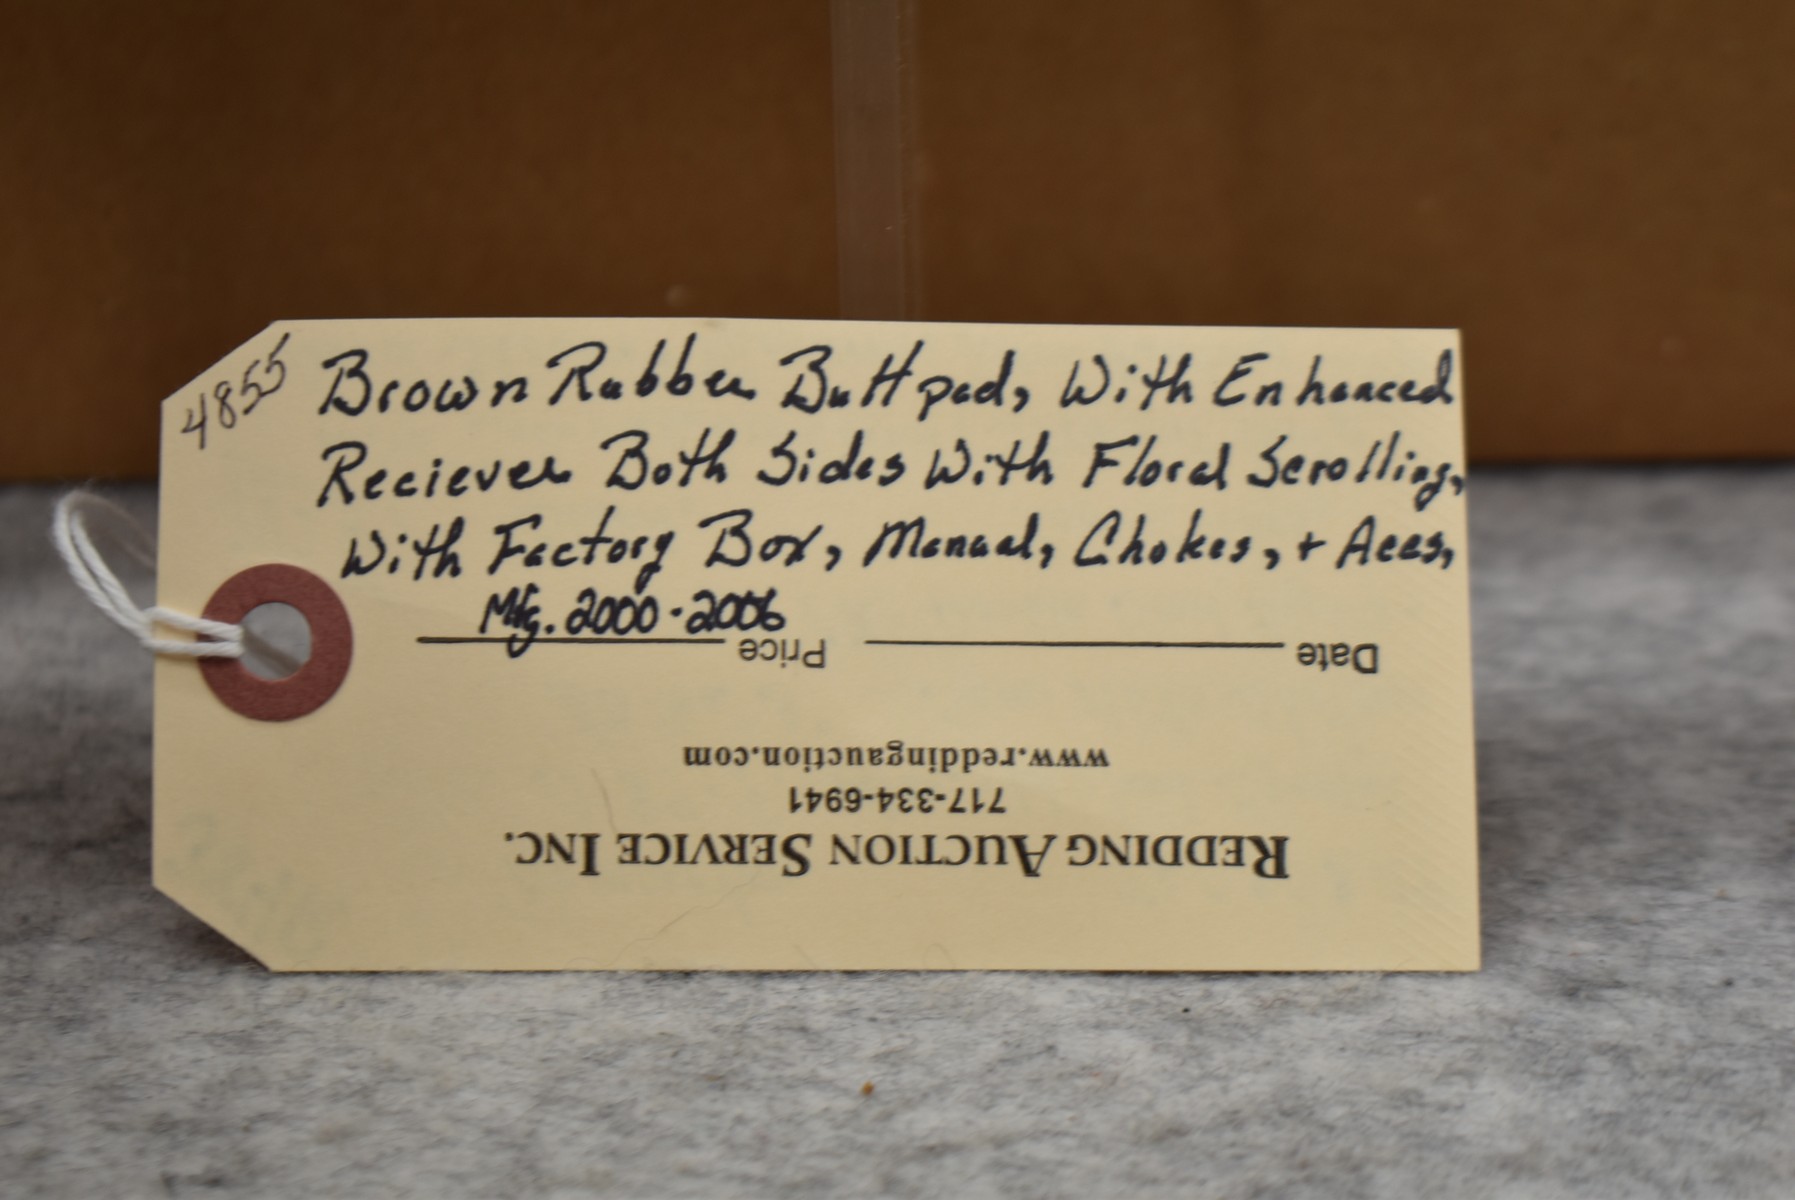 4855
Brown Rubber Buttpad, With Enhanced
Reciever Both Sides With Floral Scrolling,
With Factory Box, Manual, Chokes, + Aces,
Mfg. 2000-2006
Date Price
www.reddingauction.com
717-334-6941
REDDING AUCTION SERVICE INC.